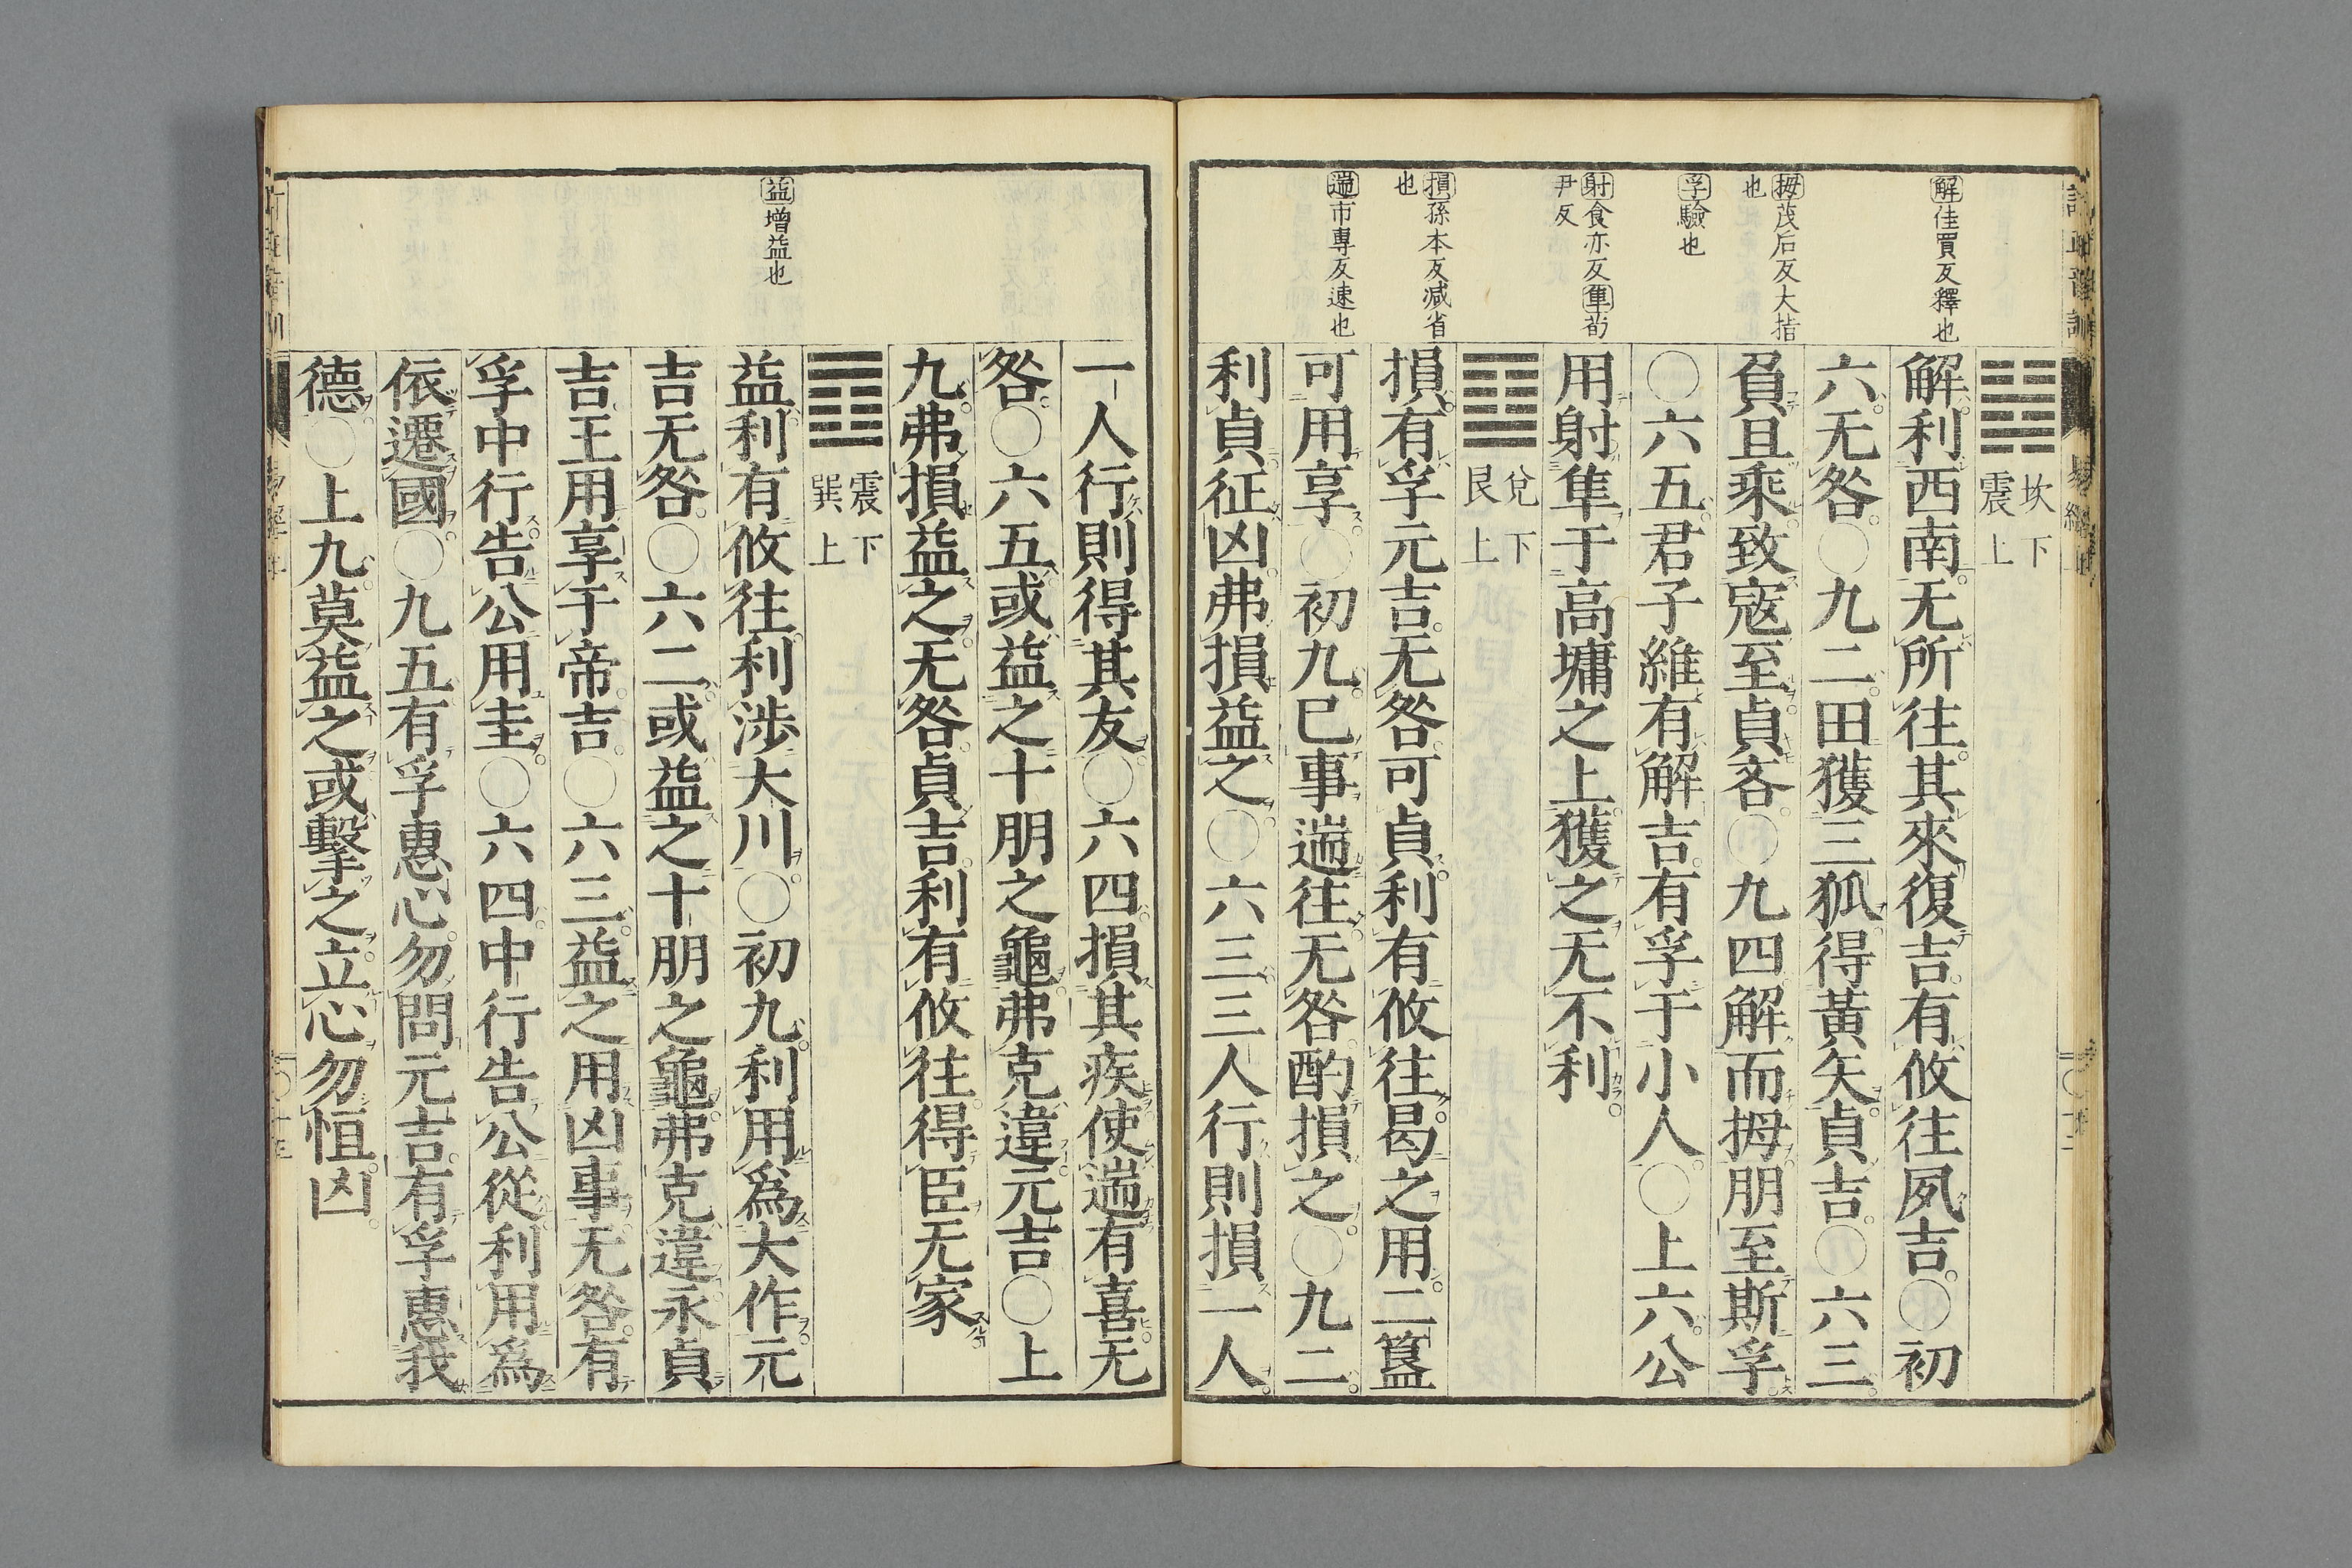 坎下
震上
解利西南无所往其來復吉有攸往夙吉○初
六无咎○九二田獲三狐得黃矢貞吉○六三
負且乘致寇至貞吝○九四解而拇朋至斯孚
○六五君子維有解吉有孚于小人○上六公
用射隼于高墉之上獲之无不利
兌下
艮上
損有孚元吉无咎可貞利有攸往曷之用二簋
可用享○初九已事遄往无咎酌損之○九二
利貞征凶弗損益之○六三三人行則損一人
解佳買反釋也
拇茂后反大指
也
孚驗也
射食亦反隼荀
尹反
損孫本反減省
也
遄市專反速也
一人行則得其友○六四損其疾使遄有喜无
咎○六五或益之十朋之龜弗克違元吉○上
九弗損益之无咎貞吉利有攸往得臣无家
震下
巽上
益利有攸往利涉大川○初九利用爲大作元
吉无咎○六二或益之十朋之龜弗克違永貞
吉王用享于帝吉○六三益之用凶事无咎有
孚中行告公用圭○六四中行告公從利用爲
依遷國○九五有孚惠心勿問元吉有孚惠我
德○上九莫益之或擊之立心勿恒凶
益增益也